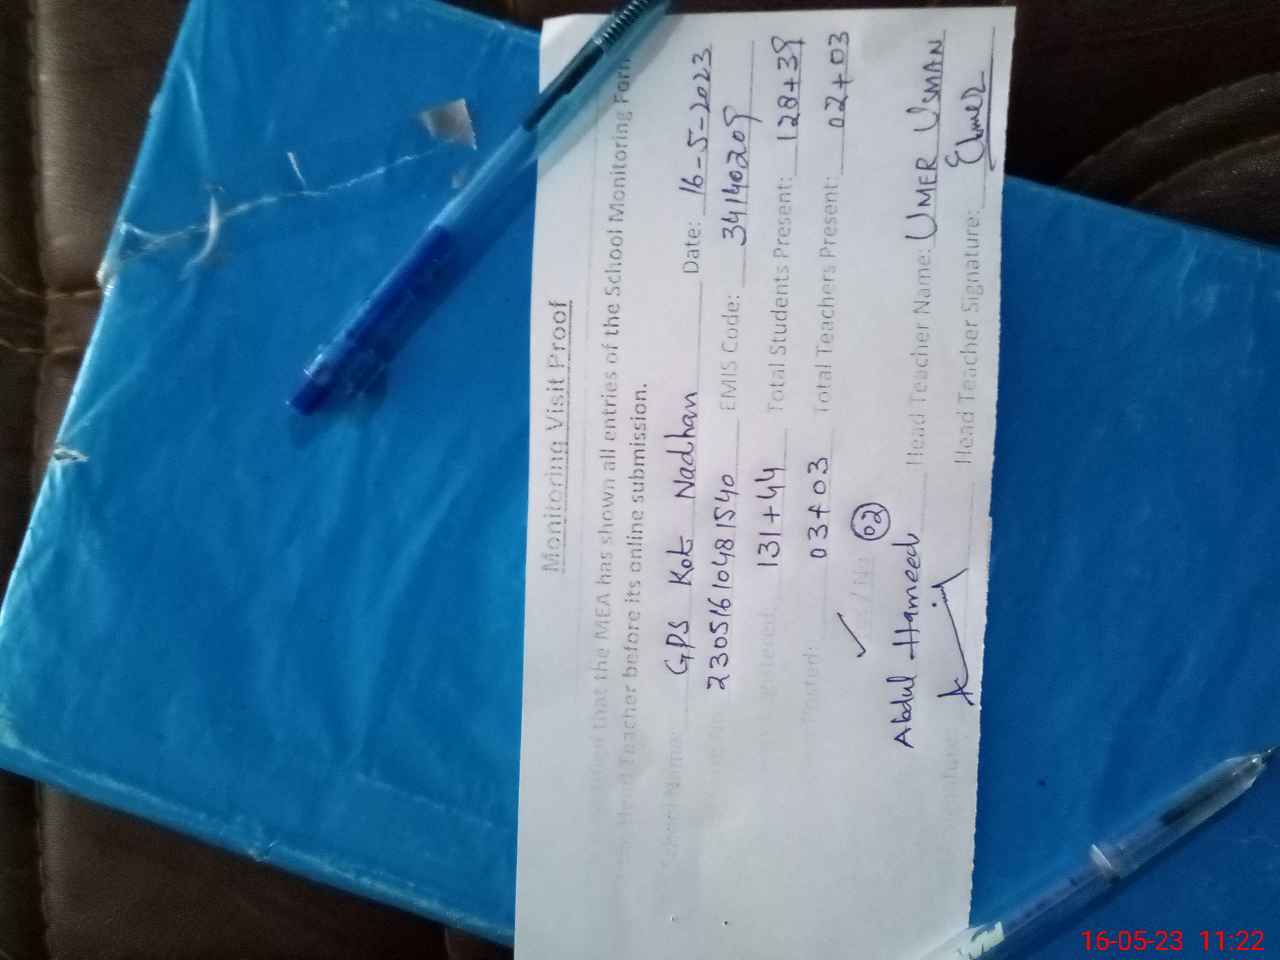 Monitoring Visit Proof
that the MEA has shown all entries of the School Monitoring Form
Head Teacher before its online submission.
School Name: GPS Kot Nadhan Date: 16-5-2023
2305161048 1540 EMIS Code: 34140209
131+44 Total Students Present: 128+39
Posted: 03+03 Total Teachers Present: 02+03
✓ / No 02
Abdul Hameed Head Teacher Name: UMER USMAN
Head Teacher Signature: Umer
16-05-23 11:22